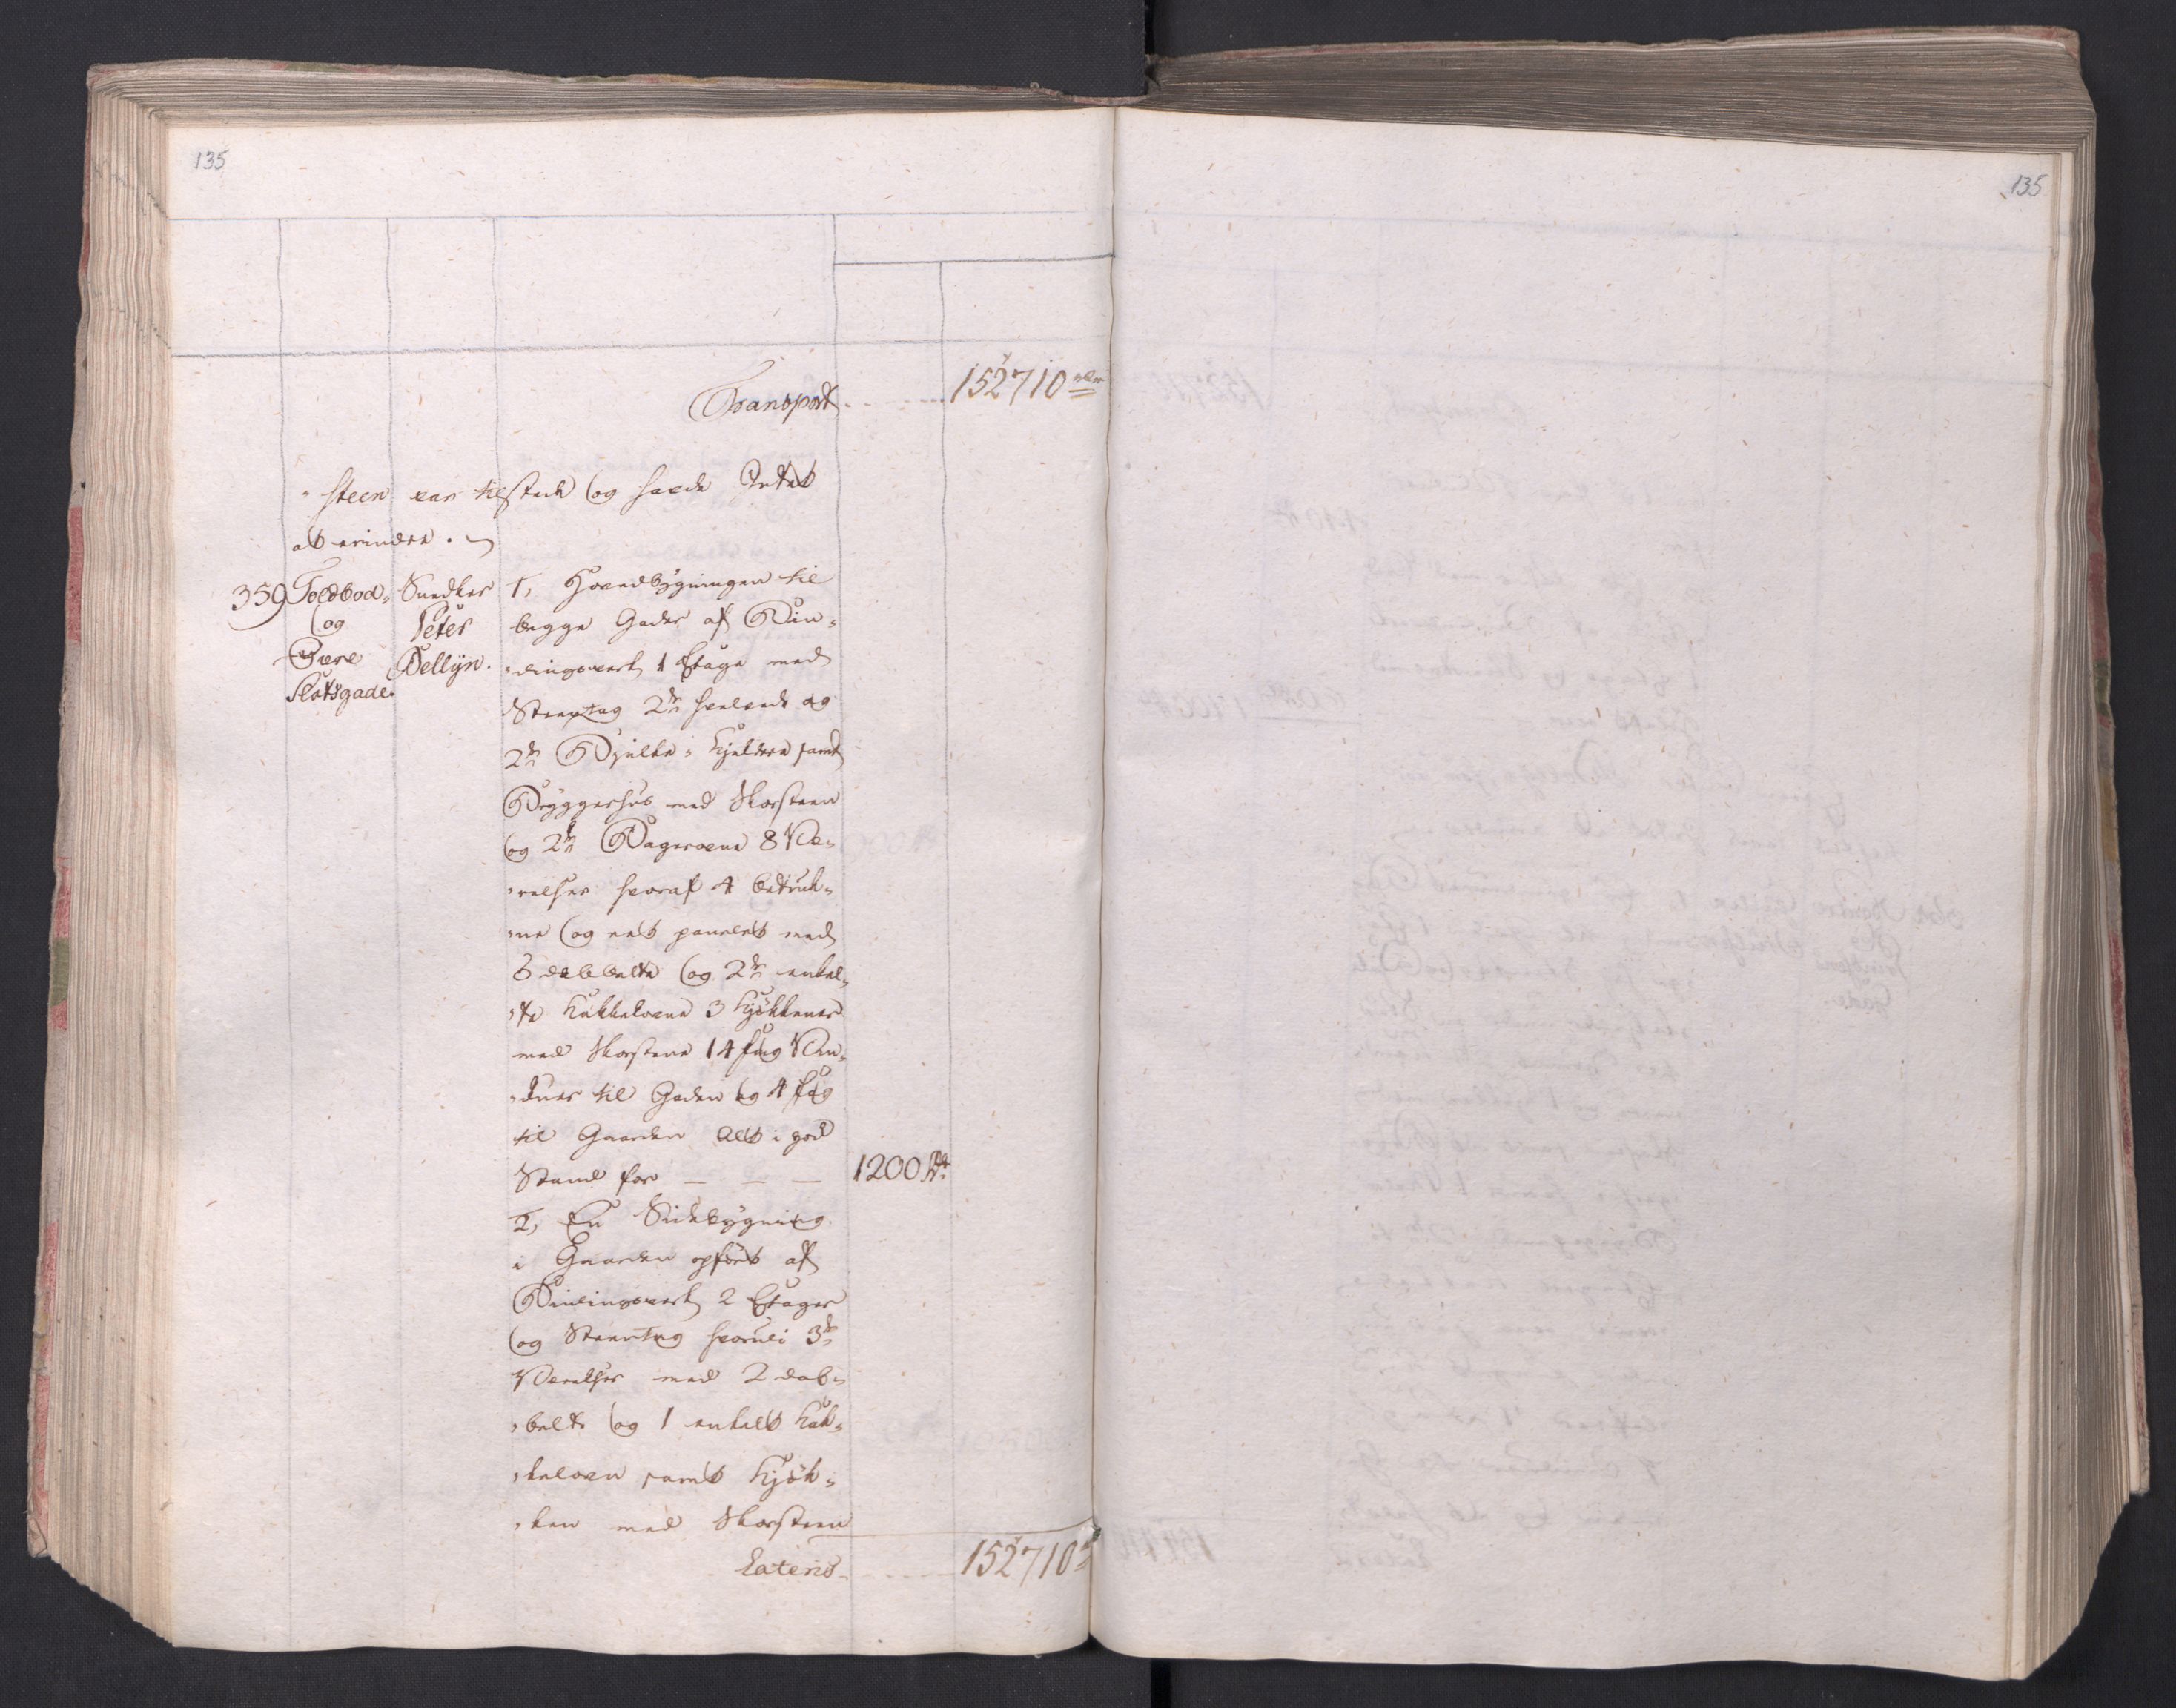 135
135
Transport . . . . . . . 152710
" steen var tilstede og havde Intet
at erindre .
359 Toldbod„ og Øvre Slotsgade
Snedker Peter Dellijn.
1, Hovedbÿgningen til
begge Gader af Bin„
„dingsverk 1 Etage med
Steentag 2de
2de Bjelke„ Kjeldere samt
Brÿggerhus med Skorsteen
og 2de Bagerovne 8 Væ„
„relser hvoraf 4 betruk„
„ne og eet panelet med
6 dobbelte og 2de enkel„
„te Kakkelovne 3 Kjøkkener
med Skorstene 14 fag Vin„
„duer til Gaden og 4 fag
til Gaarden alt i god
Stand for — — — 1200 Rd
2, En Sidebÿgning
i Gaarden opført af
Bindingsverk 2 Etager
og Steentag hvorudi 3de
Værelser med 2 dob„
„belte og 1 enkelt Kak„
„kelovn samt Kjøk„
„ken med Skorsteen
Lateris . . . . . 152710